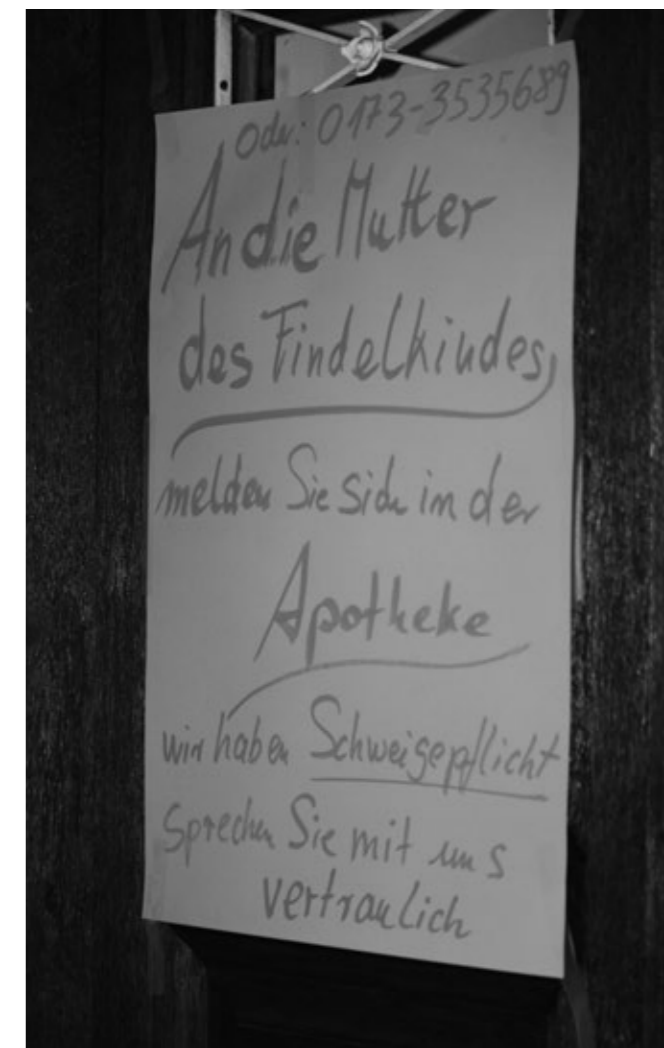 Oder: 0173-3535689
An die Mutter
des Findelkindes,
melden Sie sich in der
Apotheke
wir haben Schweigepflicht
Sprechen Sie mit uns
vertraulich